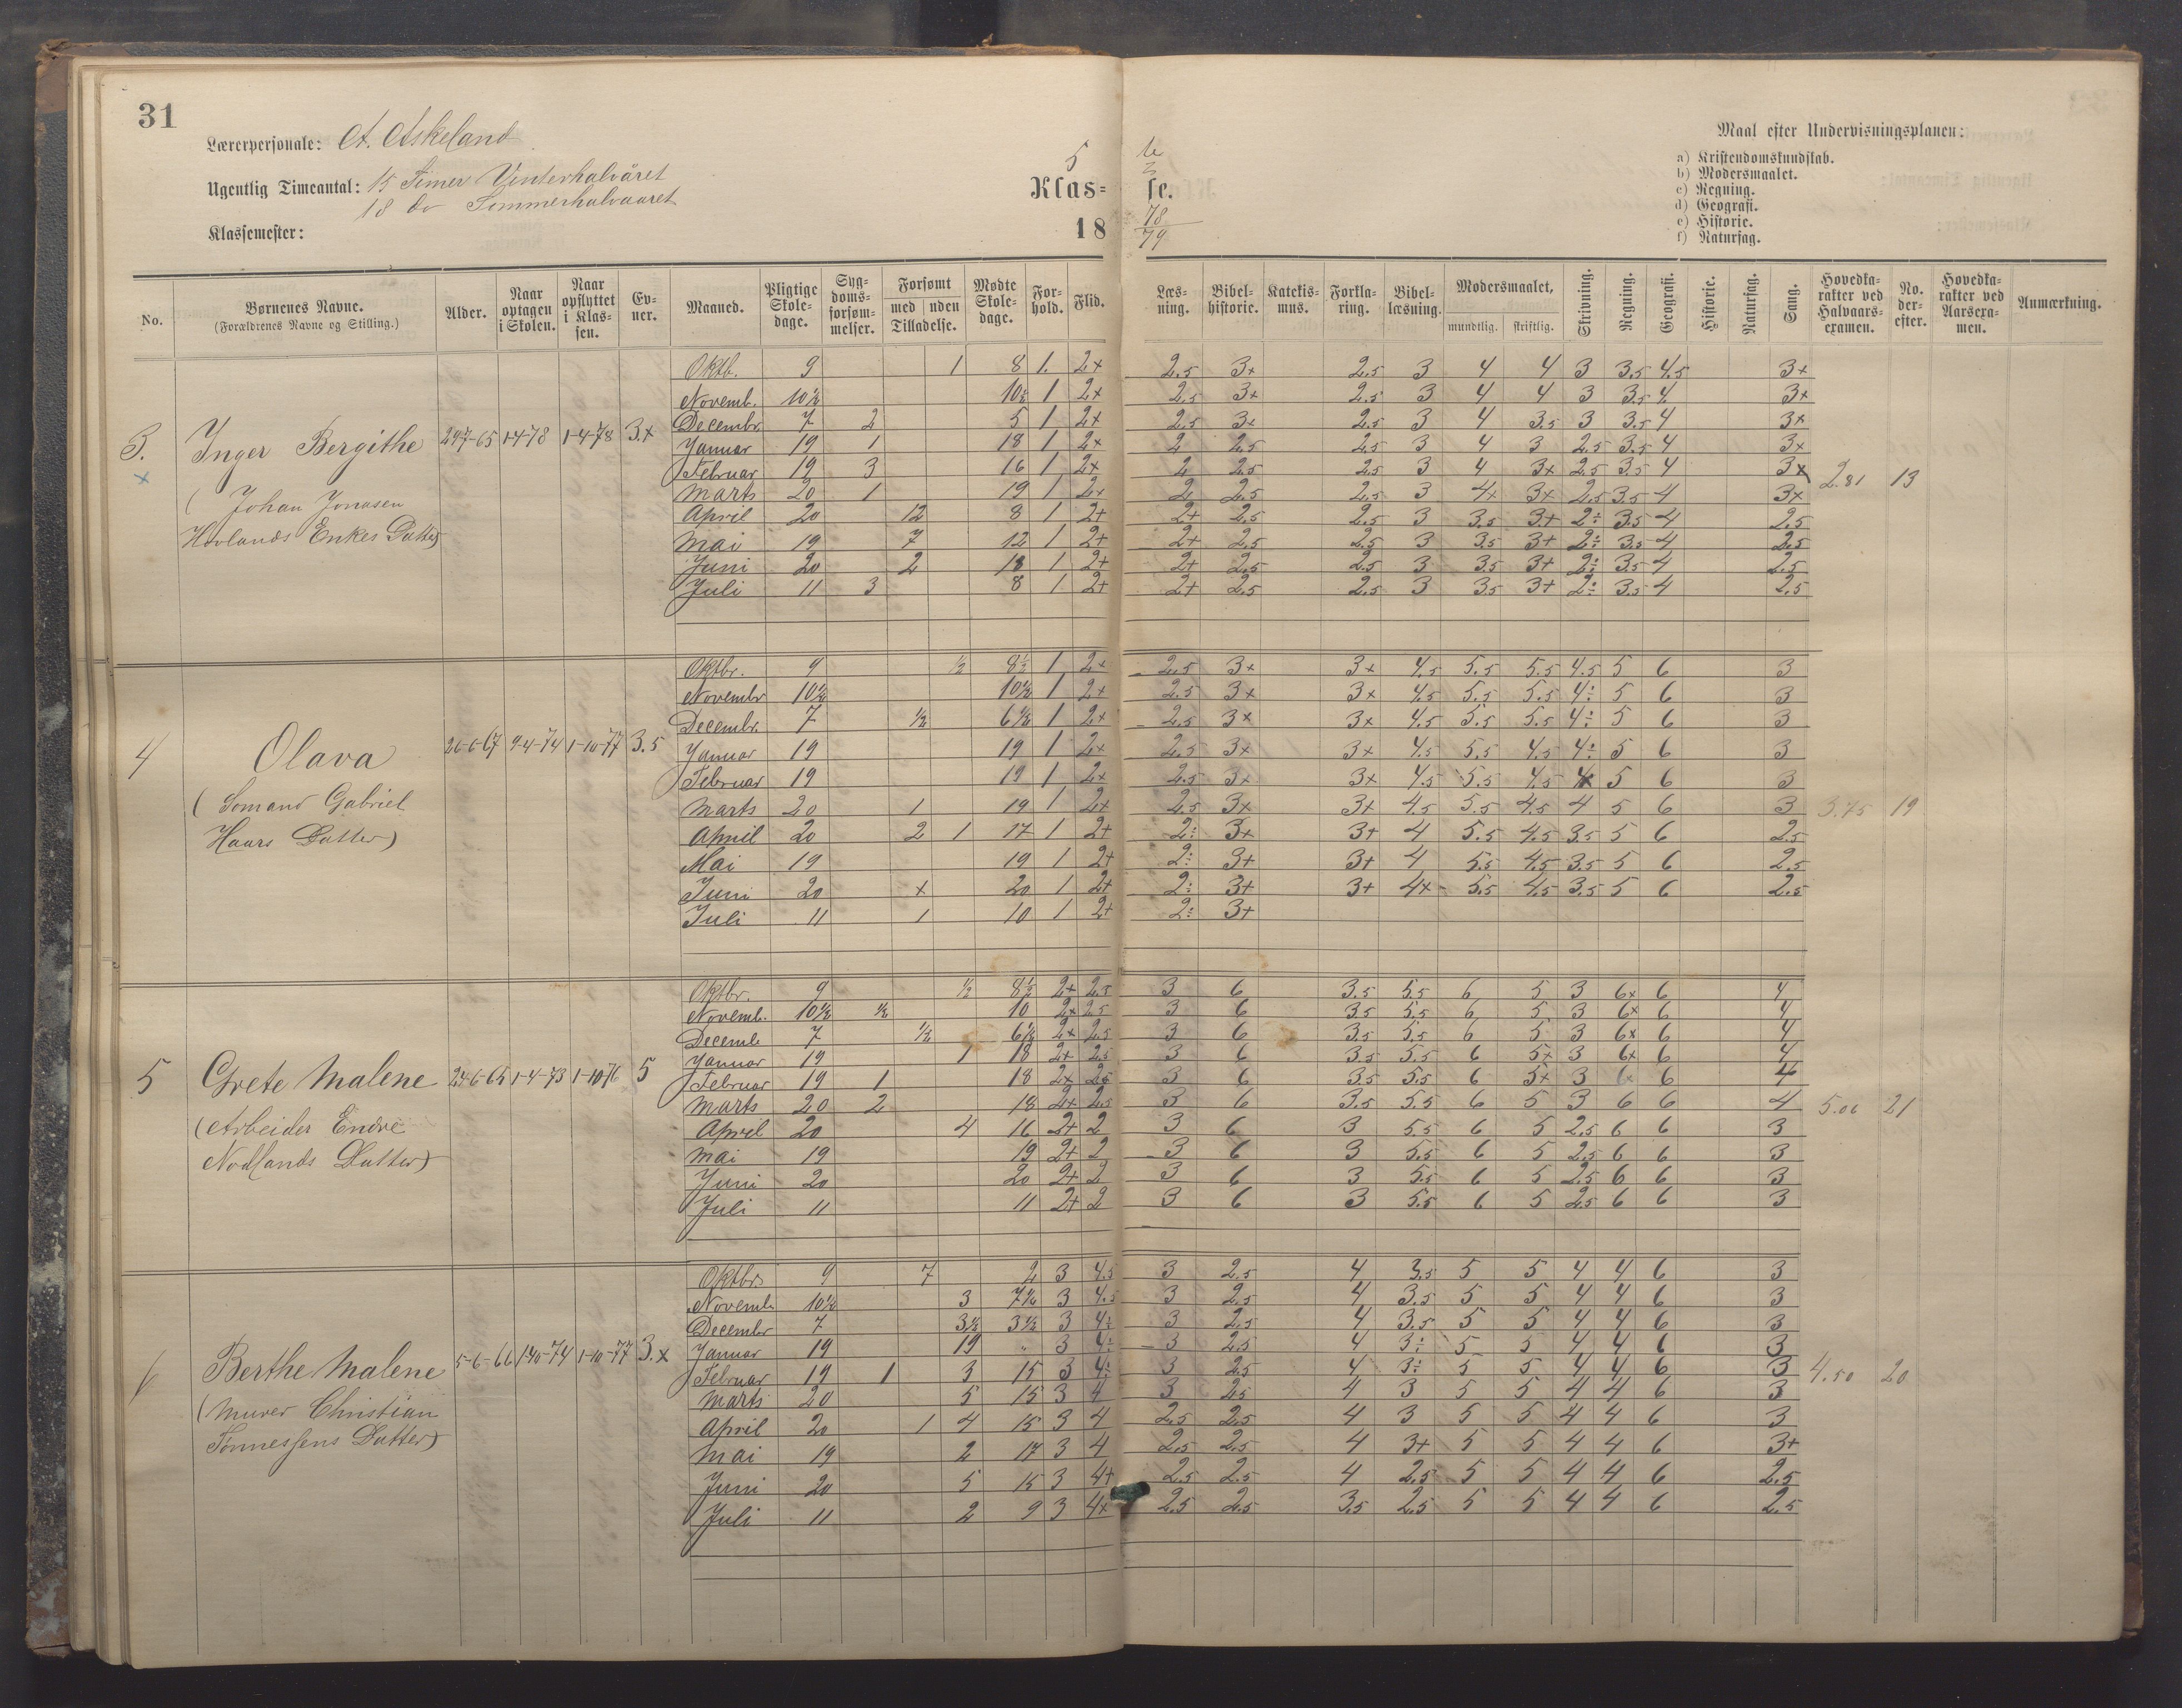 31
Lærerpersonale: A. Askeland
Ugentlig Timeantal: 15 Timer Vinterhalvåret
18 do Sommerhalvaaret
Klassemester:
5te
Klasse.
18 78/79
Maal efter Undervisningsplanen:
a) Kristendomskundskab.
b) Modersmaalet.
c) Regning.
d) Geografi.
e) Historie.
f) Naturfag.
No. Børnenes Navne. (Forældrenes Navne og Stilling.) Alder. Naar optagen i Skolen. Naar opflyttet i Klassen. Evner. Maaned. Pligtige Skoledage. Sygdomsforsømmelser. Forsømt med uden Tilladelse. Mødte Skoledage. Forhold. Flid. Læsning. Bibelhistorie. Katekismus. Forklaring. Bibellæsning. Modersmaalet, mundtlig. skriftlig. Skrivning. Regning. Geografi. Historie. Naturfag. Sang. Hovedkarakter ved Halvaarsexamen. No. derefter. Hovedkarakter ved Aarsexamen. Anmærkning.
Oktb. 9 1 8 1. 2x 2.5 3x 2.5 3 4 4 3 3.5 4.5 3x
Novemb. 10½ 10½ 1 2x 2.5 3x 2.5 3 4 4 3 3.5 4. 3x
Decembr. 7 2 5 1 2x 2.5 3x 2.5 3 4 3.5 3 3.5 4 3x
3. Inger Bergithe 24-7-65 1-4-78 1-4-78 3.x
Januar 19 1 18 1 2x 2 2.5 2.5 3 4 3 2.5 3.5 4 3x
Februar 19 3 16 1 2x 2 2.5 2.5 3 4 3x 2.5 3.5 4 3x
x
2.81 13
(Johan Jonasen
Marts 20 1 19 1 2x 2 2.5 2.5 3 4x 3x 2.5 3.5 4 3x
April 20 12 8 1 2+ 2+ 2.5 2.5 3 3.5 3+ 2÷ 3.5 4 2.5
Hovlands Enkes Datter)
Mai 19 7 12 1 2+ 2+ 2.5 2.5 3 3.5 3+ 2÷ 3.5 4 2.5
Juni 20 2 18 1 2+ 2+ 2.5 2.5 3 3.5 3+ 2÷ 3.5 4 2.5
Juli 11 3 8 1 2+ 2+ 2.5 2.5 3 3.5 3+ 2÷ 3.5 4 2.5
Oktbr. 9 ½ 8½ 1 2x 2.5 3x 3x 4.5 5.5 5.5 4.5 5 6 3
Novembr 10½ 10½ 1 2x 2.5 3x 3x 4.5 5.5 5.5 4÷ 5 6 3
Decembr. 7 ½ 6½ 1 2x 2.5 3x 3x 4.5 5.5 5.5 4÷ 5 6 3
4 Olava 26-6-67 9-4-74 1-10-77 3.5
Januar 19 19 1 2x 2.5 3x 3x 4.5 5.5 4.5 4÷ 5 6 3
Februar 19 19 1 2x 2.5 3x 3x 4.5 5.5 4.5 4x 5 6 3
(Sømand Gabriel
Marts 20 1 19 1 2x 2.5 3x 3x 4.5 5.5 4.5 4 5 6 3 3.75 19
Haars Datter)
April 20 2 1 17 1 2+ 2÷ 3+ 3+ 4 5.5 4.5 3.5 5 6 2.5
Mai 19 19 1 2+ 2÷ 3+ 3+ 4 5.5 4.5 3.5 5 6 2.5
Juni 20 x 20 1 2+ 2÷ 3+ 3+ 4x 5.5 4.5 3.5 5 6 2.5
Juli 11 1 10 1 2+ 2÷ 3+
Oktbr. 9 ½ 8½ 2x 2.5 3 6 3.5 5.5 6 5 3 6x 6 4
Novemb. 10½ ½ 10 2x 2.5 3 6 3.5 5.5 6 5 3 6x 6 4
Decemb. 7 ½ 6½ 2x 2.5 3 6 3.5 5.5 6 5 3 6x 6 4
Januar 19 1 18 2x 2.5 3 6 3.5 5.5 6 5x 3 6x 6 4
5 Grete Malene 24-6-65 1-4-73 1-10-76 5
Februar 19 1 18 2x 2.5 3 6 3.5 5.5 6 5x 3 6x 6 4
Marts 20 2 18 2x 2.5 3 6 3.5 5.5 6 5 3 6 6 4 5.06 21
(Arbeider Endre
April 20 4 16 2+ 2 3 6 3 5.5 6 5 2.5 6 6 3
Nodlands Datter)
Mai 19 19 2+ 2 3 6 3 5.5 6 5 2.5 6 6 3
Juni 20 20 2+ 2 3 6 3 5.5 6 5 2.5 6 6 3
Juli 11 11 2+ 2 3 6 3 5.5 6 5 2.5 6 6 3
Oktbr. 9 7 2 3 4.5 3 2.5 4 3.5 5 5 4 4 6 3
Novemb. 10½ 3 7½ 3 4.5 3 2.5 4 3.5 5 5 4 4 6 3
Decembr 7 3½ 3½ 3 4÷ 3 2.5 4 3.5 5 5 4 4 6 3
Januar 19 19 " 3 4÷ 3 2.5 4 3÷ 5 5 4 4 6 3
6 Berthe Malene 5-6-66 1-10-74 1-10-77 3.x
Februar 19 1 3 15 3 4÷ 3 2.5 4 3÷ 5 5 4 4 6 3 4.50 20
Marts 20 5 15 3 4 3 2.5 4 3 5 5 4 4 6 3
(Murer Christian
April 20 1 4 15 3 4 2.5 2.5 4 3 5 5 4 4 6 3
Tønnessens Datter)
Mai 19 2 17 3 4 2.5 2.5 4 3+ 5 5 4 4 6 3+
Juni 20 5 15 3 4+ 2.5 2.5 4 2.5 5 5 4 4 6 2.5
Juli 11 2 9 3 4x 2.5 2.5 3.5 2.5 5 5 4 4 6 2.5